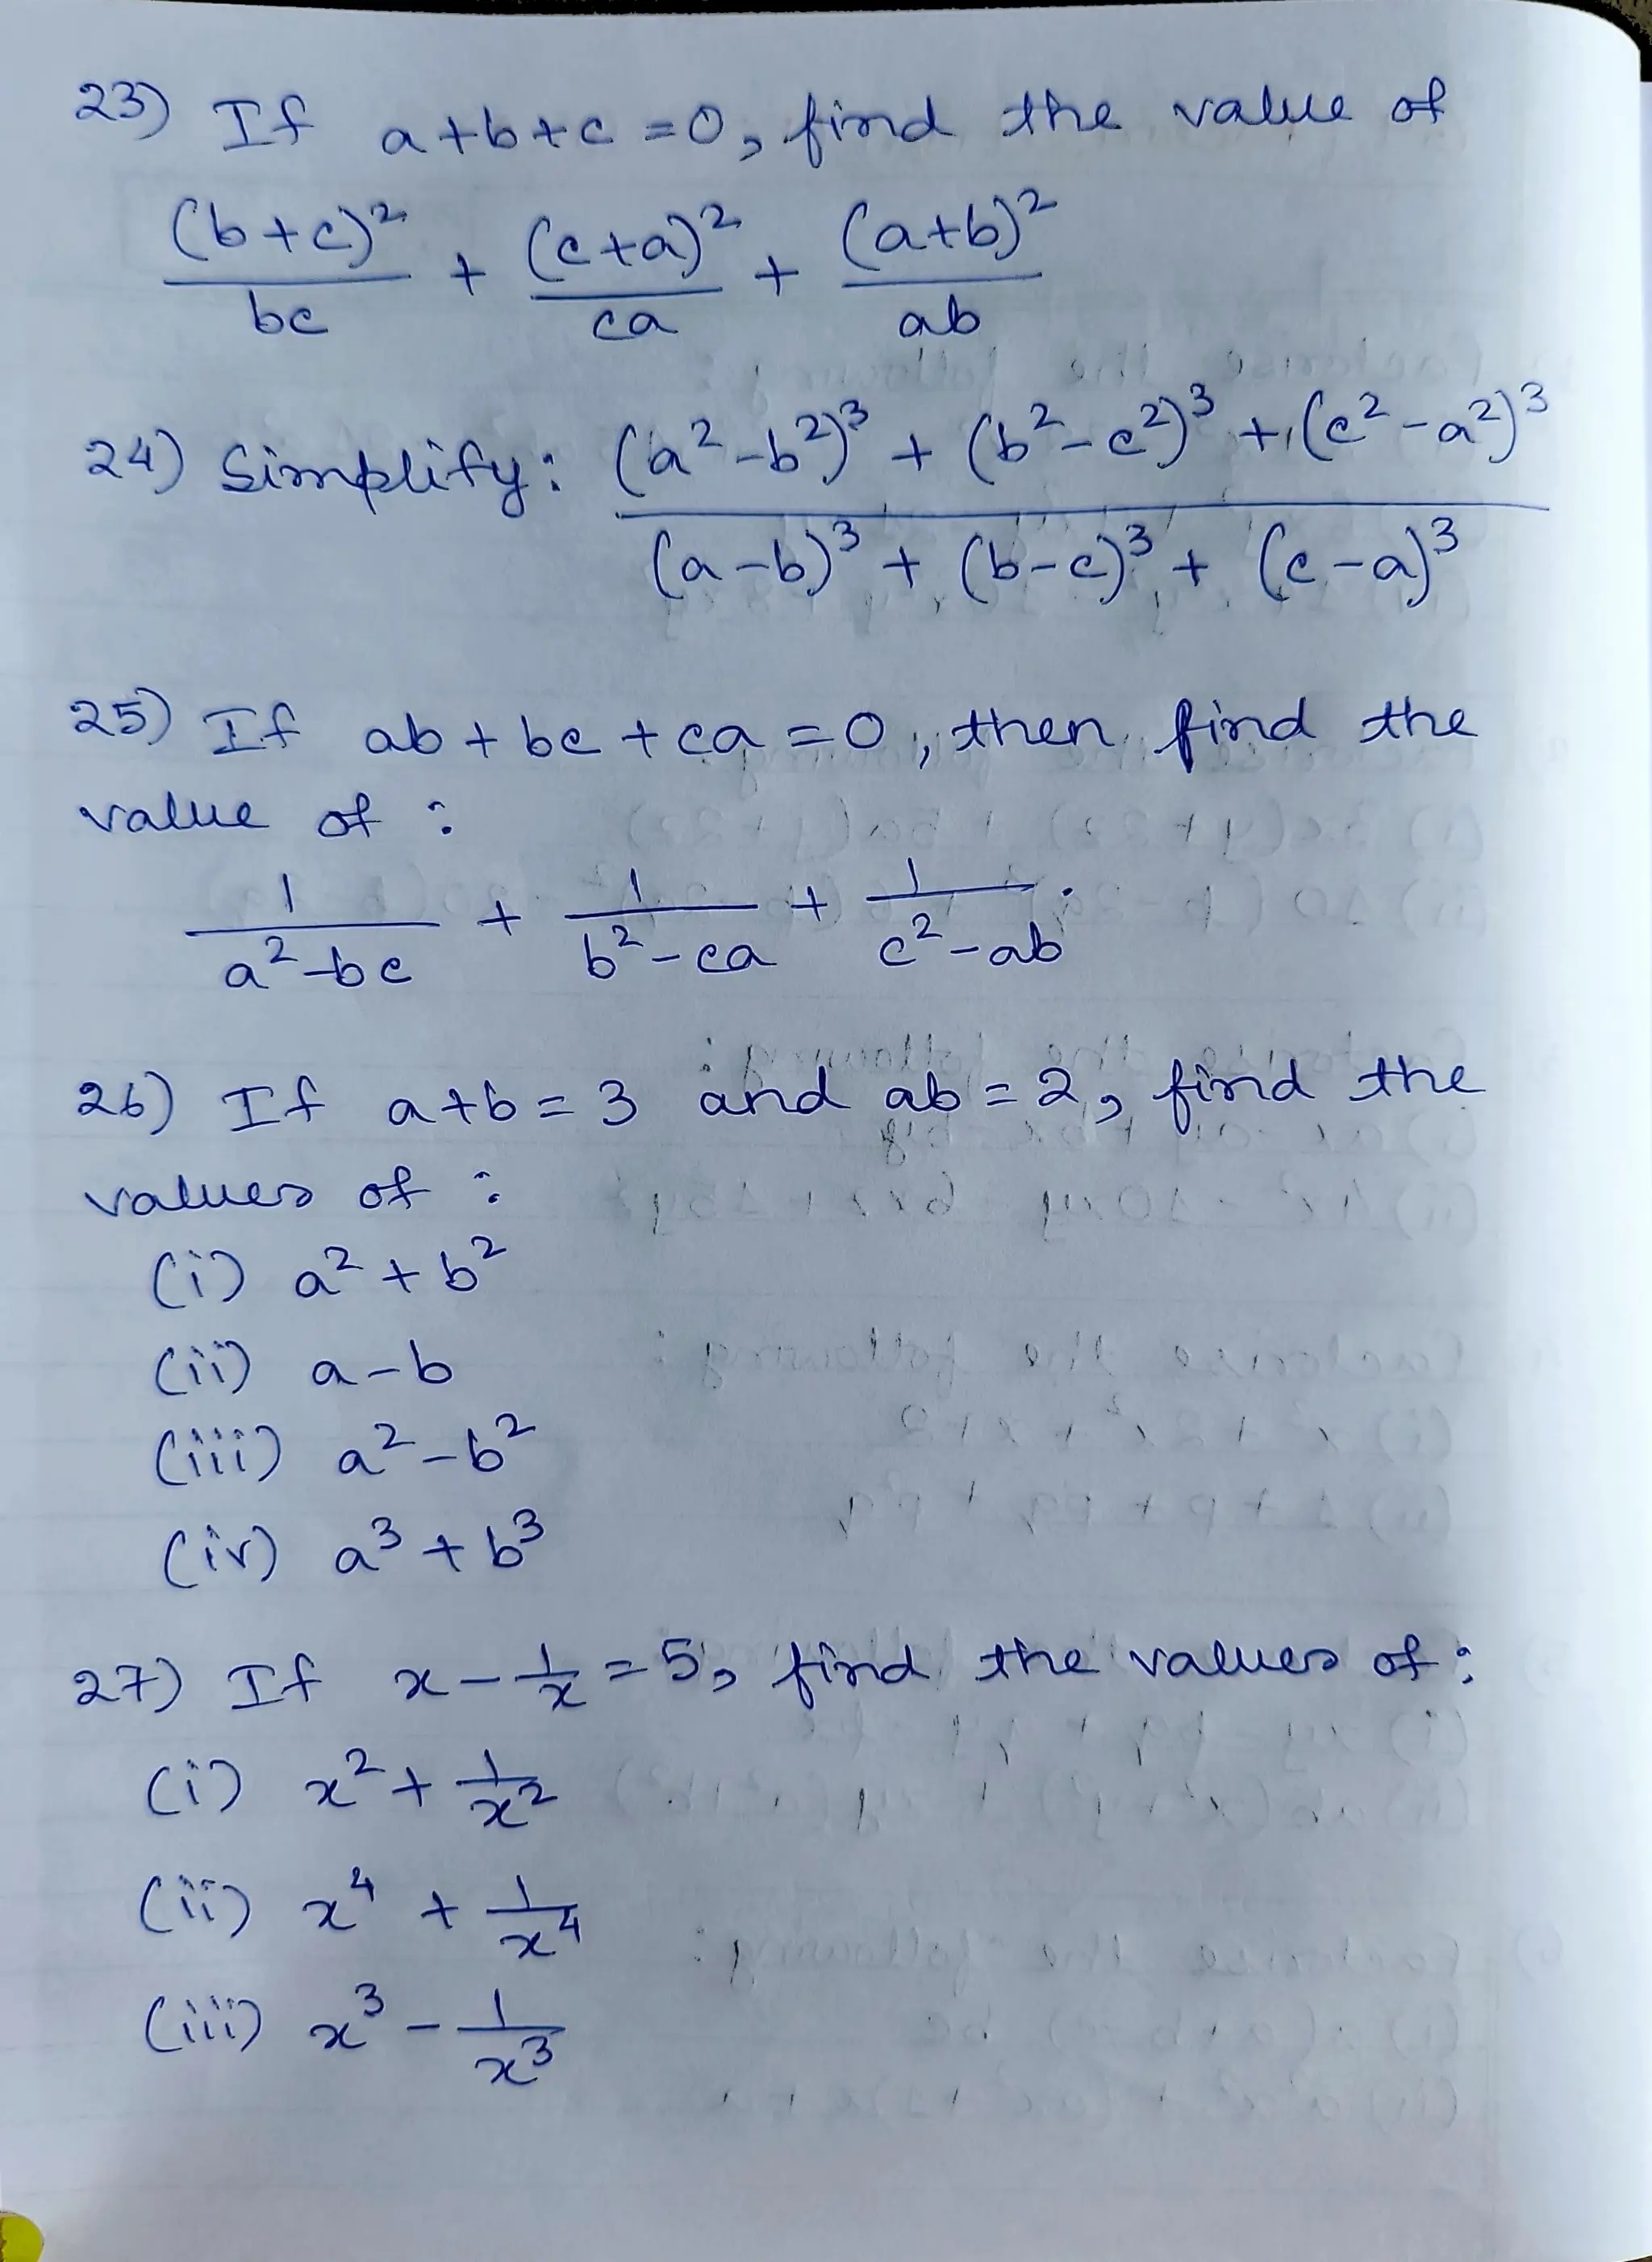 23) If a+b+c=0, find the value of
(b+c)²/bc + (c+a)²/ca + (a+b)²/ab
24) Simplify: ((a²-b²)³ + (b²-c²)³ + (c²-a²)³)/((a-b)³ + (b-c)³ + (c-a)³)
25) If ab+bc+ca=0, then find the
value of :
1/(a²-bc) + 1/(b²-ca) + 1/(c²-ab).
26) If a+b=3 and ab=2, find the
values of :
(i) a²+b²
(ii) a-b
(iii) a²-b²
(iv) a³+b³
27) If x-1/x=5, find the values of :
(i) x²+1/x²
(ii) x⁴+1/x⁴
(iii) x³-1/x³